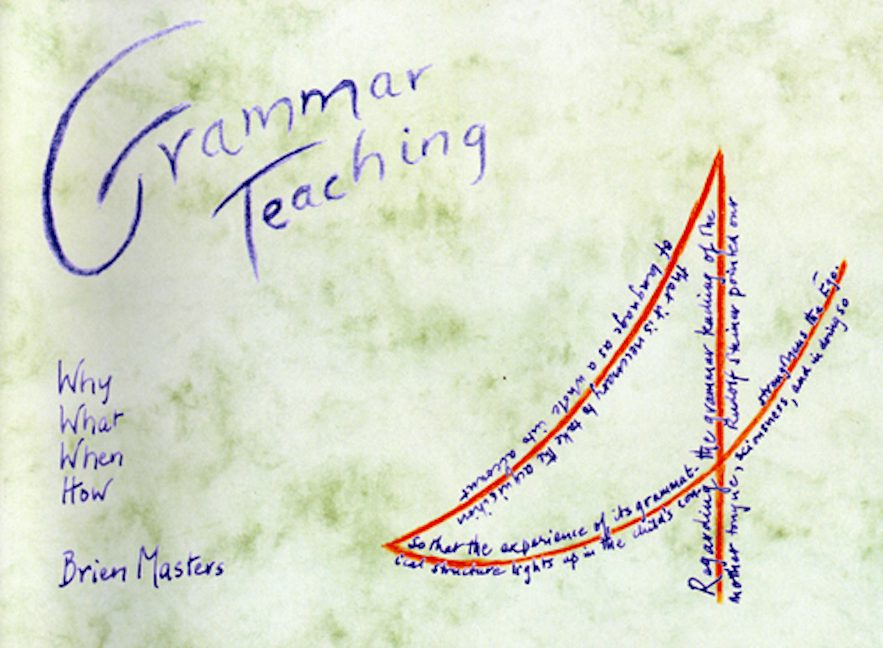 Grammar
Teaching
Why
What
When
How
Brien Masters
Regarding the grammar teaching of the
mother tongue, Rudolf Steiner pointed out
that it is necessary to take the acquisition
of language as a whole into account
so that the experience of its grammat-
ical structure lights up in the child's con-
sciousness, and in doing so
strengthens the Ego.